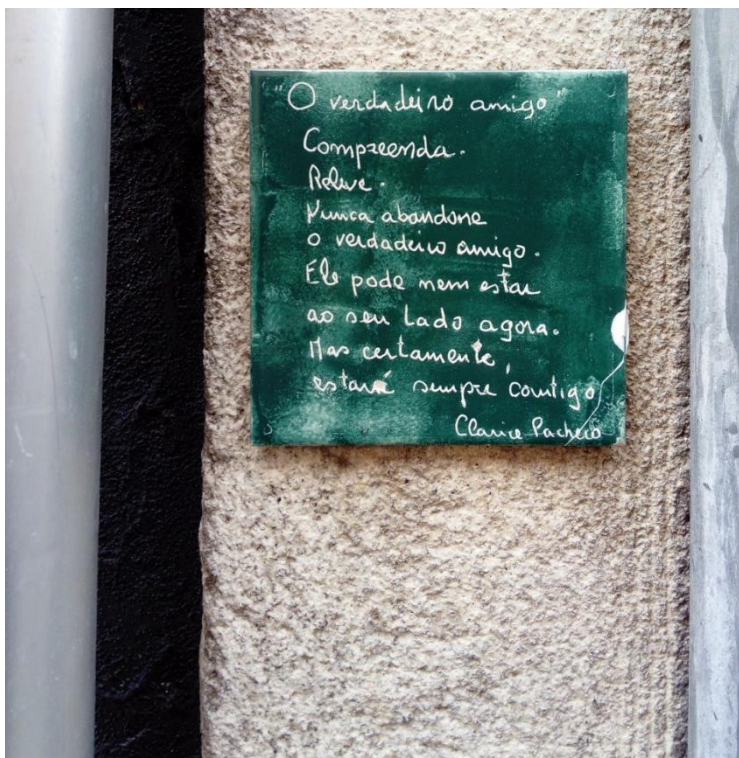 "O verdadeiro amigo"
Compreenda.
Releve.
Nunca abandone
o verdadeiro amigo.
Ele pode nem estar
ao seu lado agora.
Mas certamente,
estará sempre contigo
Clarice Pacheco